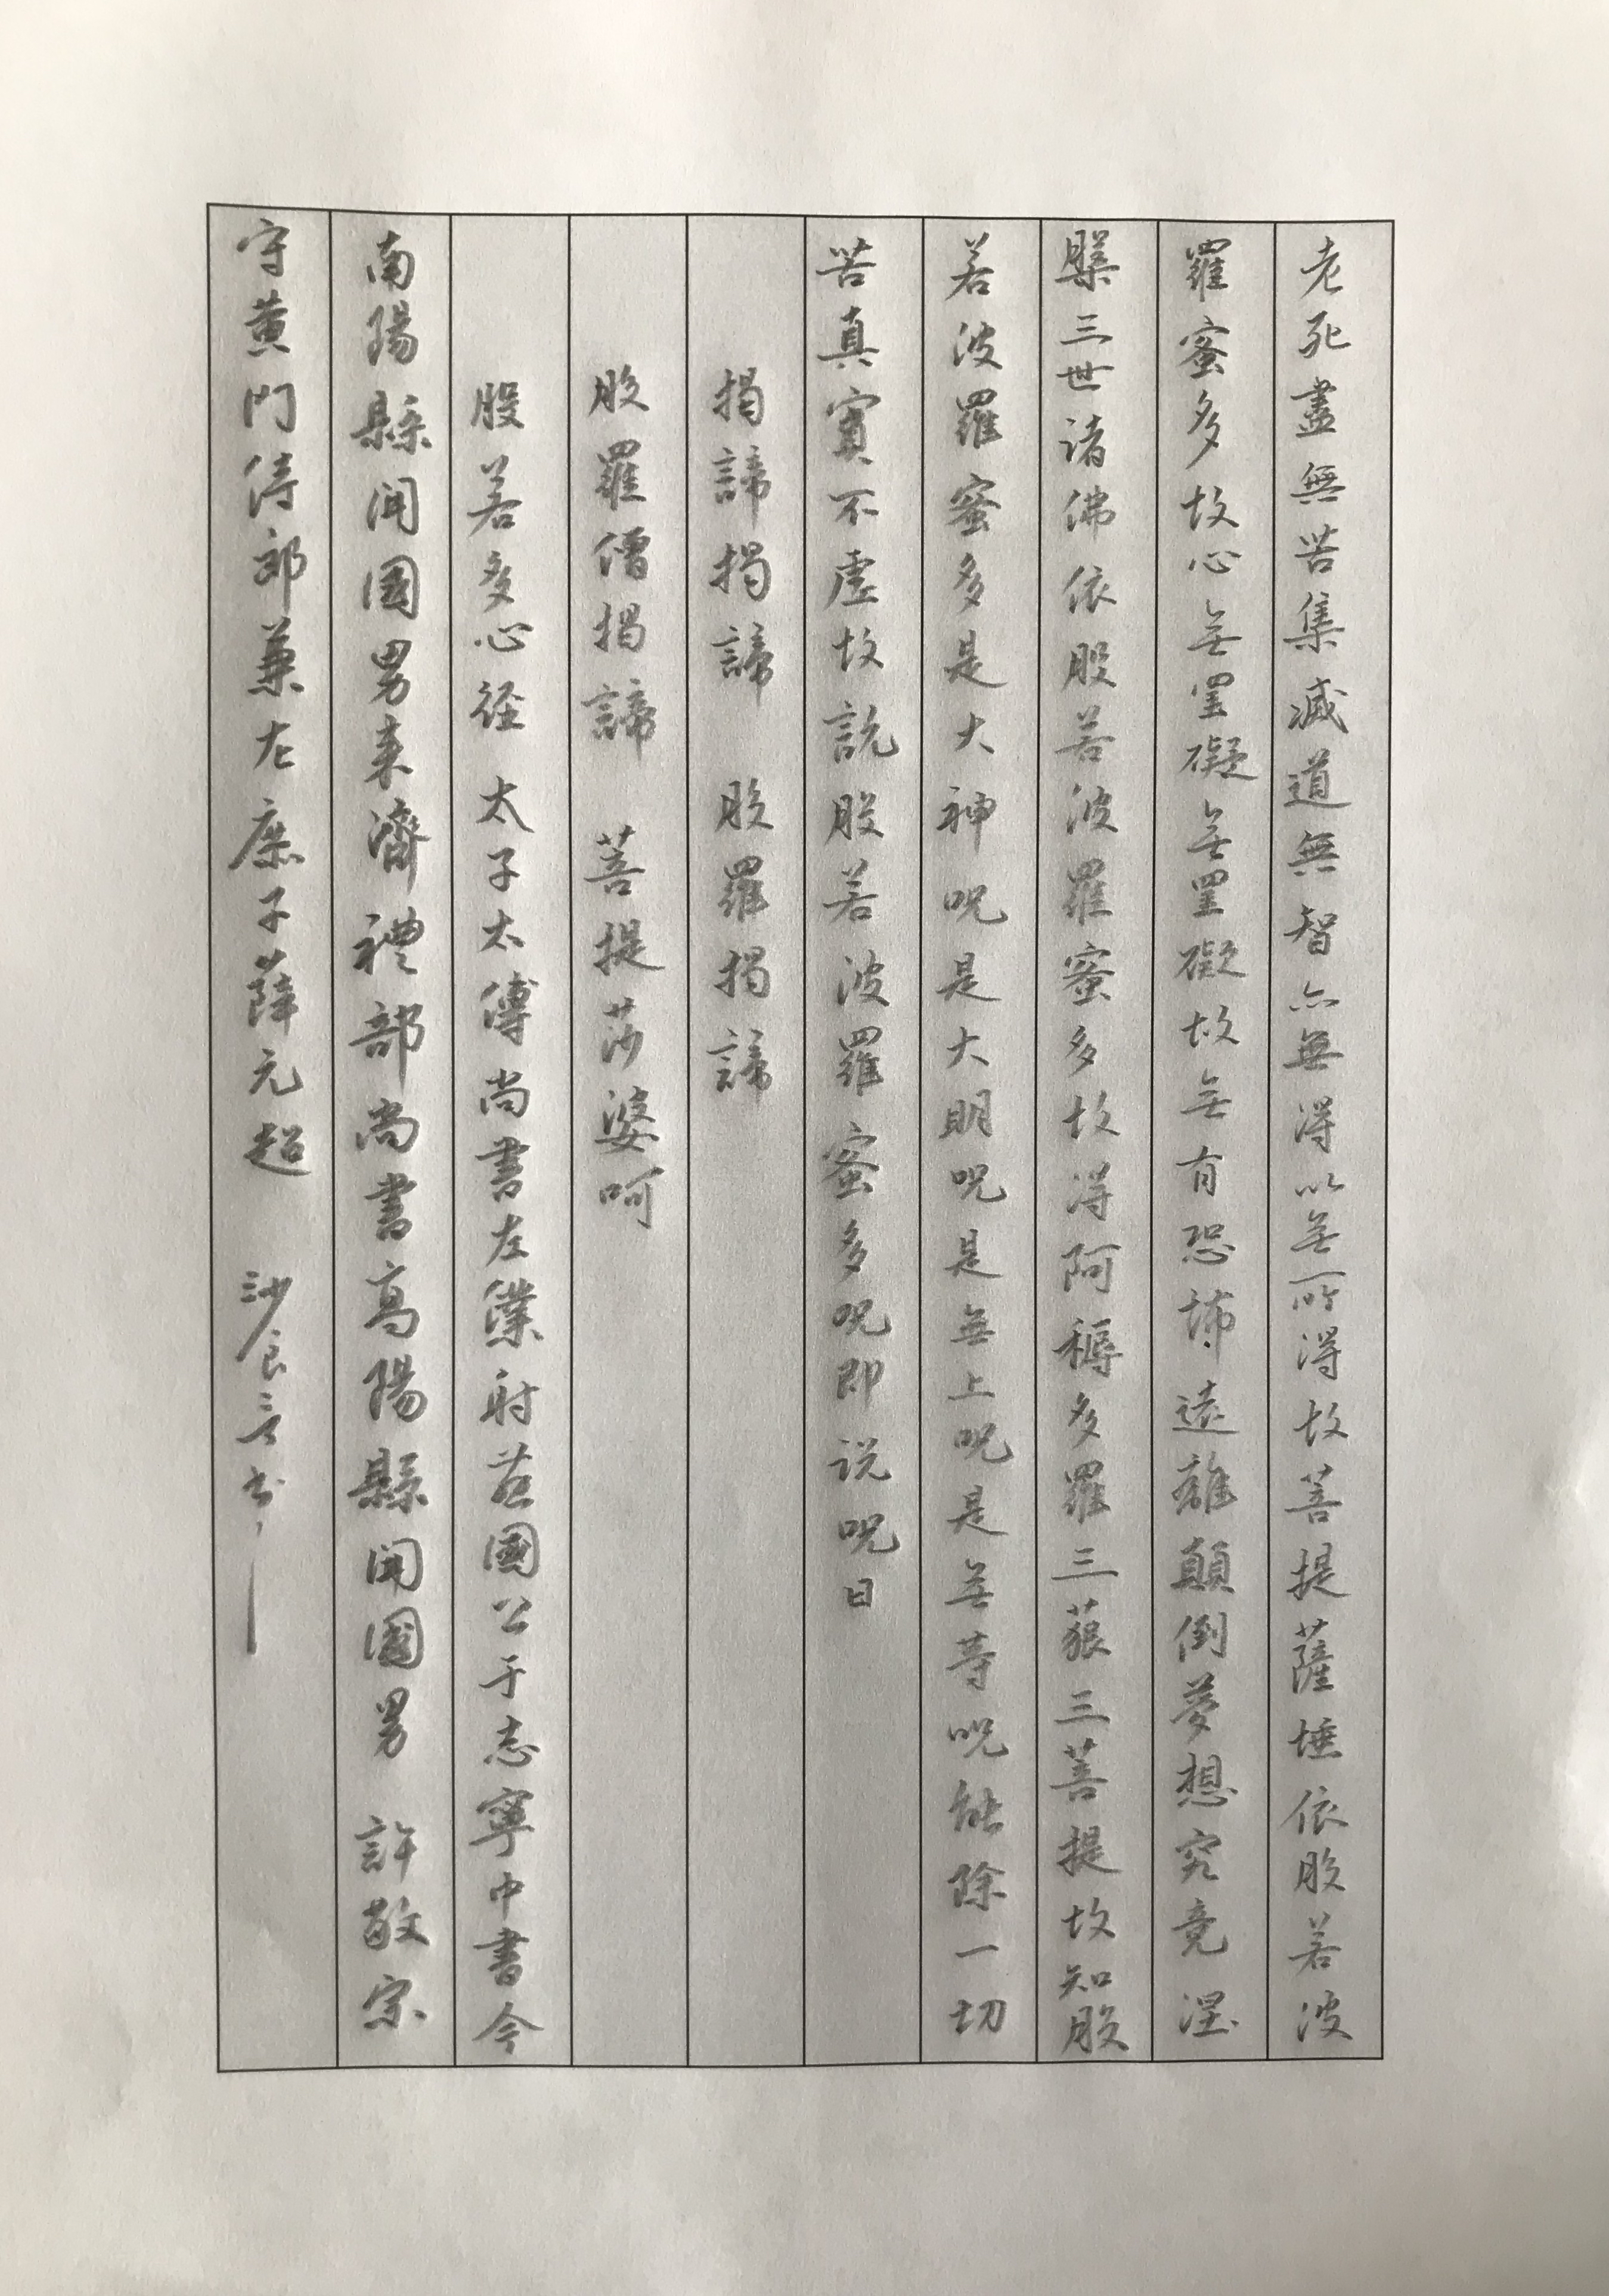 老死盡無苦集滅道無智亦無得以無所得故菩提薩埵依般若波
羅蜜多故心無罣礙無罣礙故無有恐怖遠離顛倒夢想究竟涅
槃三世諸佛依般若波羅蜜多故得阿耨多羅三藐三菩提故知般
若波羅蜜多是大神咒是大明咒是無上咒是無等咒能除一切
苦真實不虛故說般若波羅蜜多咒即说咒曰
揭諦揭諦 般羅揭諦
般羅僧揭諦 菩提莎婆呵
般若多心经 太子太傅尚書左僕射燕國公于志寧中書令
南陽縣開國男来濟禮部尚書高陽縣開國男 許敬宗
守黄門侍郎兼左庶子薛元超